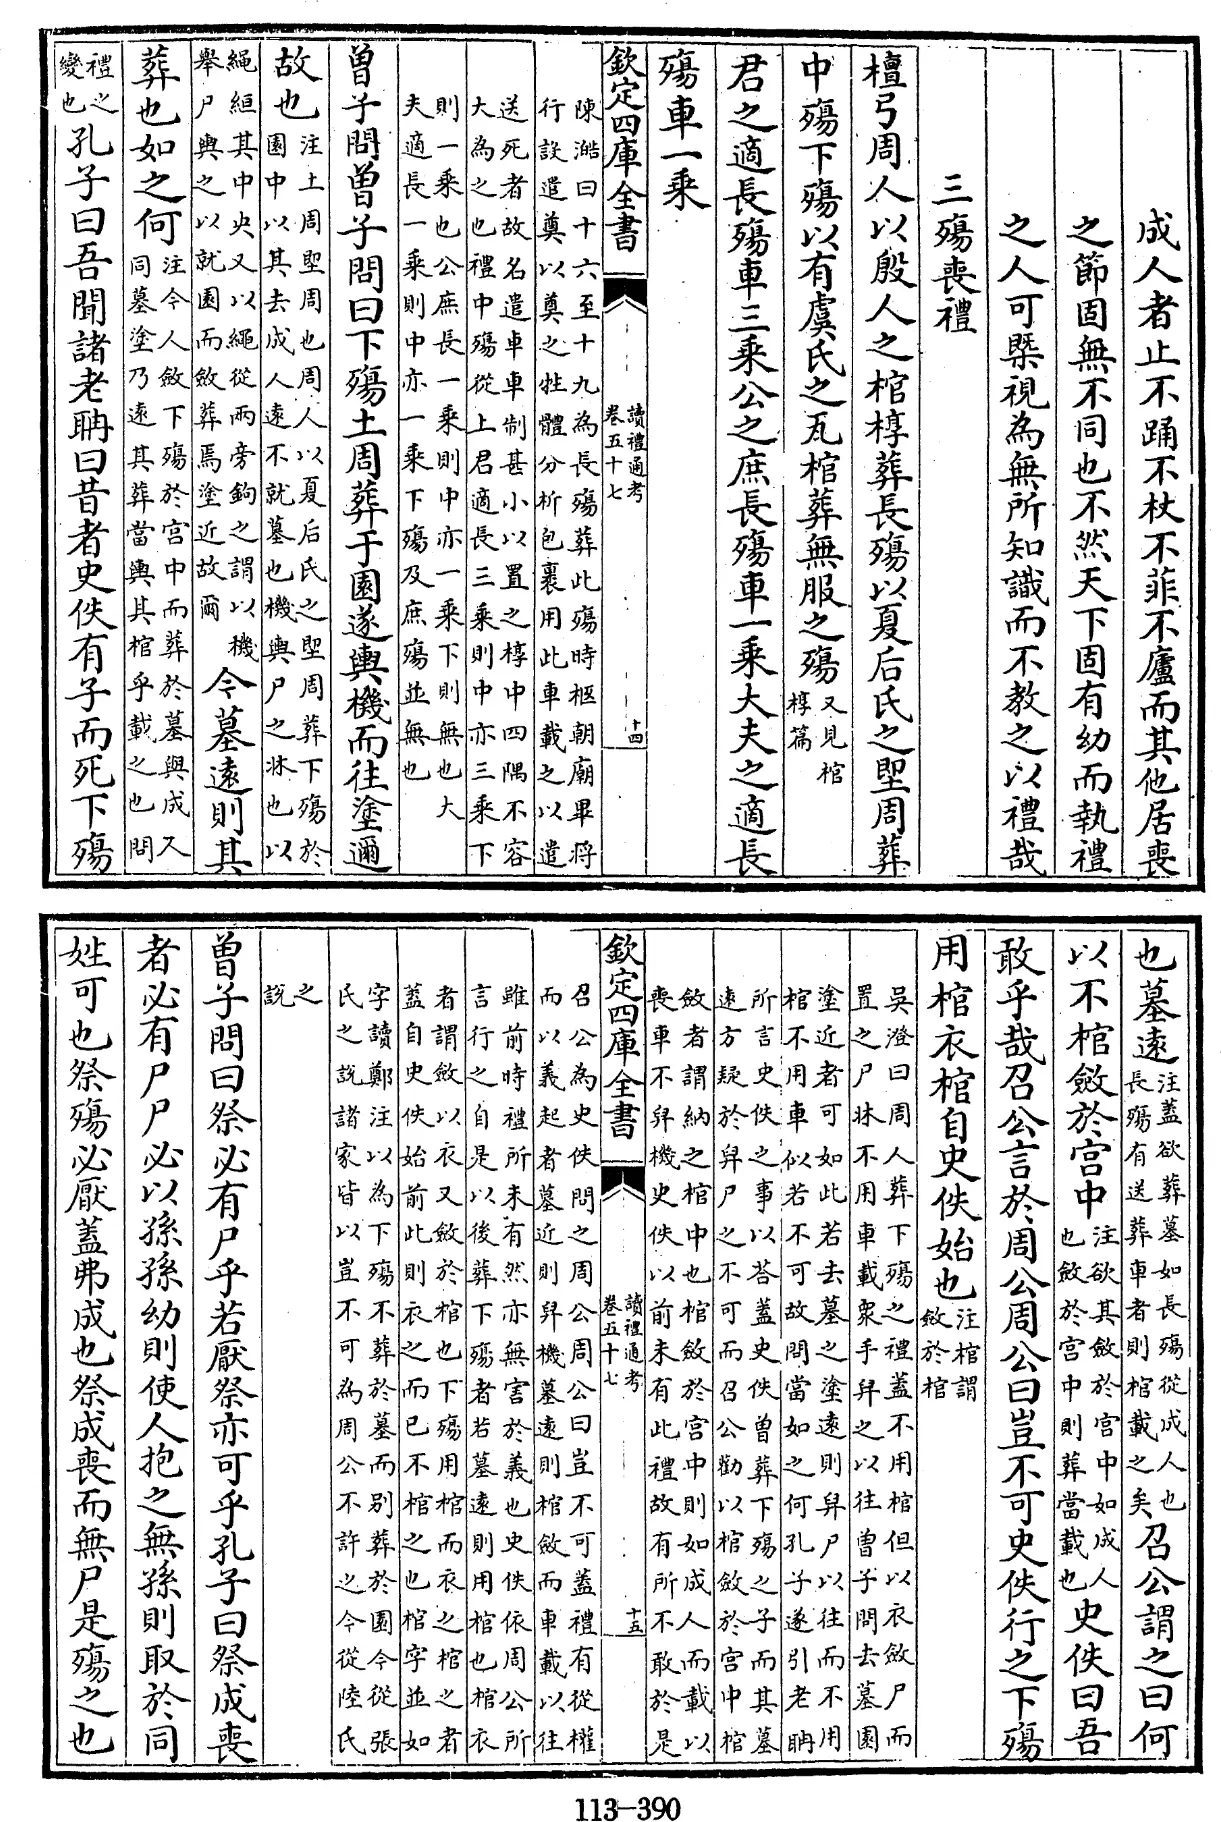 成人者止不踊不杖不菲不廬而其他居喪
之節固無不同也不然天下固有幼而執禮
之人可槩視為無所知識而不教之以禮哉
三殤喪禮
檀弓周人以殷人之棺椁葬長殤以夏后氏之堲周葬
中殤下殤以有虞氏之瓦棺葬無服之殤
又見棺
椁篇
君之適長殤車三乘公之庶長殤車一乘大夫之適長
殤車一乘
欽定四庫全書
讀禮通考
卷五十七
十四
陳澔曰十六至十九為長殤葬此殤時柩朝廟畢将
行設遣奠以奠之牲體分析包裹用此車載之以遣
送死者故名遣車車制甚小以置之椁中四隅不容
大為之也禮中殤從上君適長三乘則中亦三乘下
則一乘也公庶長一乘則中亦一乘下則無也大
夫適長一乘則中亦一乘下殤及庶殤並無也
曾子問曾子問曰下殤土周葬于園遂輿機而往塗邇
故也
注土周堲周也周人以夏后氏之堲周葬下殤於
園中以其去成人遠不就墓也機輿尸之牀也以
繩絙其中央又以繩從兩旁鉤之謂以機
舉尸輿之以就園而斂葬焉塗近故爾
今墓遠則其
葬也如之何
注今人斂下殤於宫中而葬於墓與成又
同墓塗乃遠其葬當輿其棺乎載之也問
禮之
變也
孔子曰吾聞諸老聃曰昔者史佚有子而死下殤
也墓遠
注蓋欲葬墓如長殤從成人也
長殤有送葬車者則棺載之矣
召公謂之曰何
以不棺斂於宫中
注欲其斂於宫中如成人
也斂於宫中則葬當載也
史佚曰吾
敢乎哉召公言於周公周公曰豈不可史佚行之下殤
用棺衣棺自史佚始也
注棺謂
斂於棺
吳澄曰周人葬下殤之禮蓋不用棺但以衣斂尸而
置之尸牀不用車載衆手舁之以往曾子問去墓園
塗近者可如此若去墓之塗遠則舁尸以往而不用
棺不用車似若不可故問當如之何孔子遂引老聃
所言史佚之事以荅蓋史佚曾葬下殤之子而其墓
遠方疑於舁尸之不可而召公勸以棺斂於宫中棺
斂者謂納之棺中也棺斂於宫中則如成人而載以
喪車不舁機史佚以前未有此禮故有所不敢於是
欽定四庫全書
讀禮通考
卷五十七
十五
召公為史佚問之周公周公曰豈不可蓋禮有從權
而以義起者墓近則舁機墓遠則棺斂而車載以往
雖前時禮所未有然亦無害於義也史佚依周公所
言行之自是以後葬下殤者若墓遠則用棺也棺衣
者謂斂以衣又斂於棺也下殤用棺而衣之棺之者
蓋自史佚始前此則衣之而已不棺之也棺字並如
字讀鄭注以為下殤不葬於墓而别葬於園今從張
氏之說諸家皆以豈不可為周公不許之今從陸氏
之
說
曾子問曰祭必有尸乎若厭祭亦可乎孔子曰祭成喪
者必有尸尸必以孫孫幼則使人抱之無孫則取於同
姓可也祭殤必厭蓋弗成也祭成喪而無尸是殤之也
113-390